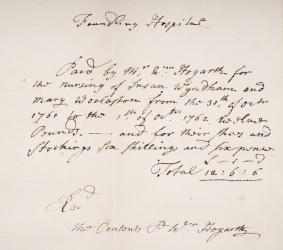 Foundling Hospital
Paid by Mr Wm Hogarth for
the nursing of Susan Wyndham and
Mary Woolaston from the 30th of Octr
1761 to the 1st of Octr 1762 twelve
Pounds. — and for their shoes and
Stockings Six Shillings and six pence
£ - s - d
Total 12 : 6 : 6
Recd
the Contents Wm Hogarth